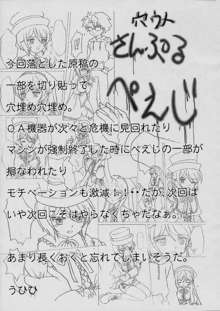 セウト
さんぷる
ぺぇじ
今回落とした原稿の
一部を切り貼って
穴埋め穴埋め。
OA機器が次々と危機に見回れたり
マシンが強制終了した時にぺえじの一部が
掘なわれたり
モチベーションも激減！！‥だが、次回は
いや次回こそはやらなくちゃだなぁ。
あまり長くおくと忘れてしまいそうだ。
うひひ